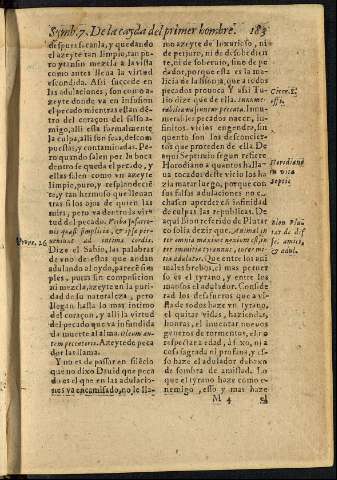 Symb. 7. De la cayda del primer hombre. 183
despues sacarla, y quedando
el azeyte tan limpio, tan pu-
ro y tan sin mezcla a la vista
como antes llena la virtud
escondida. Assi sucede en
las adulaciones, son como
azeyte donde va en infusion
el pecado mientras estan den-
tro del coraçon del falso a-
migo, alli esta formalmente
la culpa, alli son feas, descom-
puestas, y contaminadas. Pe-
ro quando salen por la boca
dentro se queda el pecado, y
ellas salen como vn azeyte
limpio, puro, y resplandecié-
te, y tan hermoso que lleuan
tras si los ojos de quien las
mira, pero va dentro la vir-
tud del pecado.
quasi simplicia, & ipsa per-
ueniunt ad intima cordis.
Dize el Sabio, las palabras
de vno de estos que andan
adulando al oydo, parecé sim-
ples, pura sin composicion
ni mezcla, azeyte en la puri-
dad de su naturaleza, pero
llegan hasta lo mas intimo
del coraçon, y alli la virtud
del pecado que va infundida
da muerte al alma. Oleum au-
tem peccatoris. Azeyte de peca-
dor las llama.
Y no es de passar en silécio
que no dixo Dauid que peca
do es el que en las adulacio-
nes va encamisado, no le lla-
mo azeyte de luxurioso, ni
de perjuro, ni de desobedien
te, ni de soberuio, sino de pe-
cador, porque esta es la ma-
licia de la lisonja, que a todos
pecados prouoca y assi Tu-
lio dize que de ella.
Innume-
rabilia
pecados prouoca nacen, in-
finitos vicios engendra, sin
quento son los desconcier-
tos que proceden de ella. De
aqui Septimio segun refiere
Herodiano a quantos halla-
ua tocados deste vicio los ha
zia matar luego, porque con
sus falsas adulaciones no e-
chassen a perder essa infinidad
de culpas las republicas. De
aqui Bion referido de Plutar
co solia dezir que.
ter omnia maxime noxium est, in-
ter immitia tyrannus, inter mi-
tia adulator. Que entre los ani
males brebos, el mas perner
so es el tyrano, y entre los
mansos el adulador. Conside
rad los desafueros que a vn
estado todos haze vn tyrano,
el quitar vidas, haziendas,
honras, el inuentar nueuos
generos de tormentos, el no
respectar a edad, ni sexo, ni a
cosa sagrada ni profana, y es-
so haze el adulador debaxo
de sombra de amistad. Lo
que el tyrano haze como e-
nemigo, esso y mas haze
M 4 el
Prou. 26.
Herodiano
in vita
Septi.
Bion Plu
tar. de dif
fe. amici,
& adul.